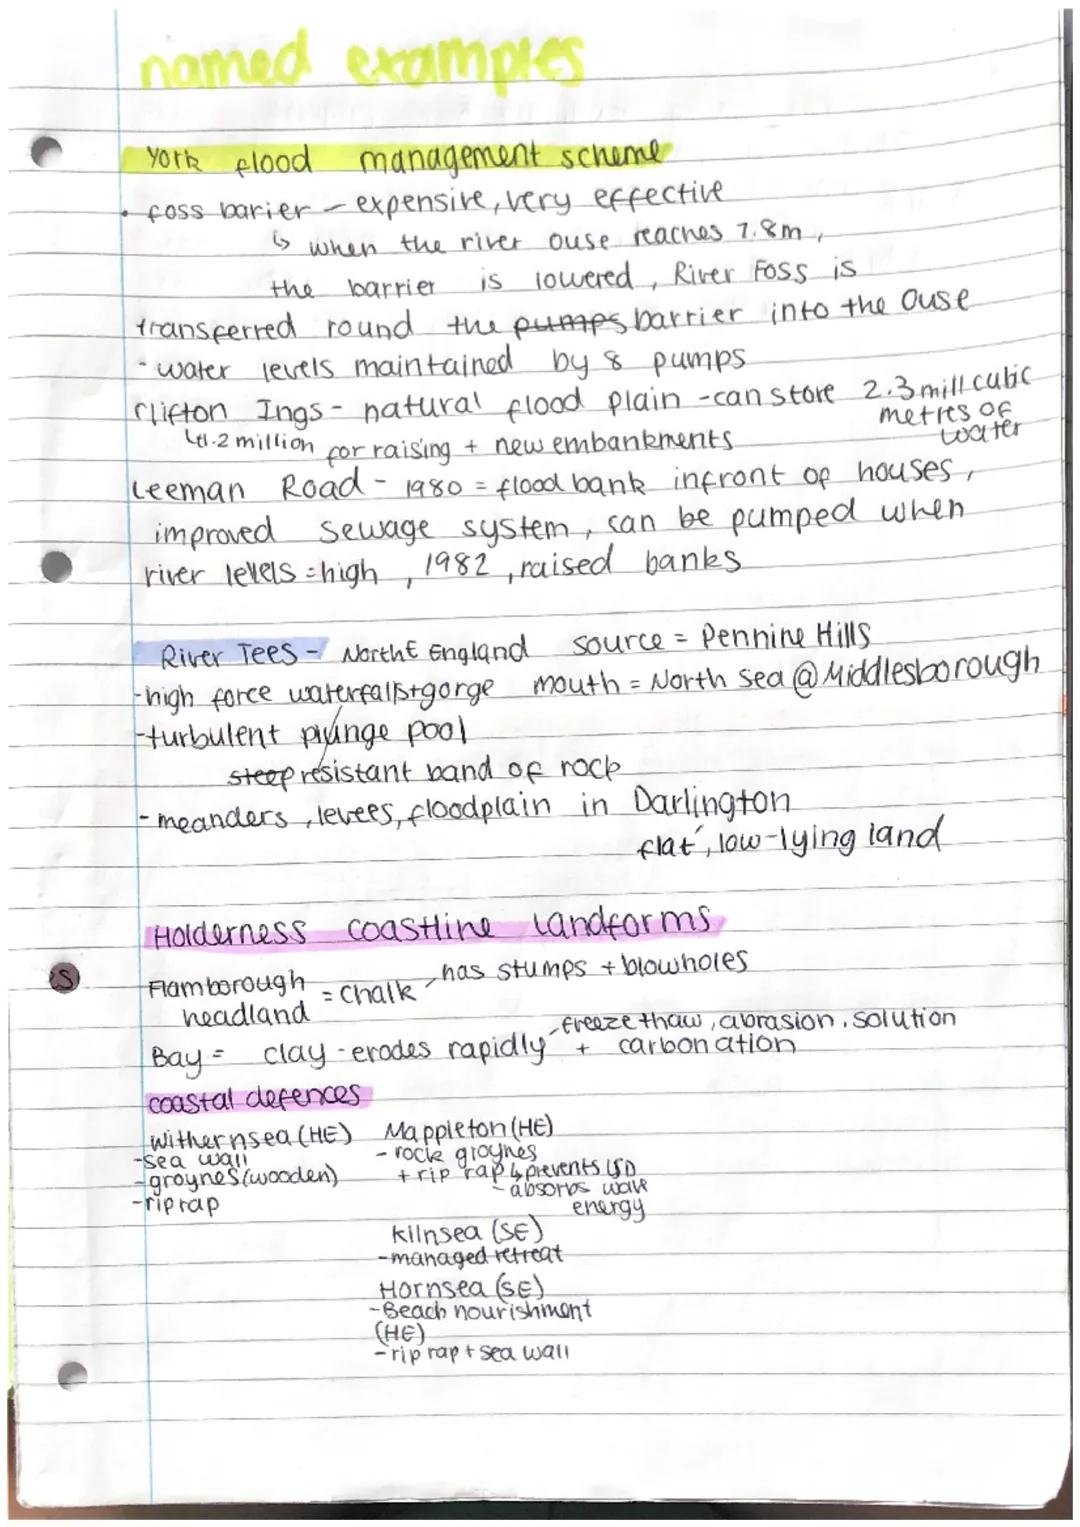 named examples
York flood management scheme
• foss barier - expensive, very effective
↳ when the river ouse reaches 7.8m,
the barrier is lowered, River Foss is
transferred round the pumps barrier into the Ouse
- water levels maintained by 8 pumps
Clifton Ings - natural flood plain - can store 2.3 mill cubic
metres of
water
↳ £1.2 million for raising + new embankments
Leeman Road - 1980 = flood bank infront of houses,
improved sewage system, can be pumped when
river levels = high, 1982, raised banks
River Tees - NorthE England source = Pennine Hills
- high force waterfalls + gorge mouth = North Sea @ Middlesborough
- turbulent plunge pool
steep resistant band of rock
- meanders, levees, floodplain in Darlington
flat, low-lying land
Holderness coastline landforms
Flamborough headland = chalk has stumps + blowholes
Bay = clay - erodes rapidly freeze thaw, abrasion, solution
+ carbonation
coastal defences
Withernsea (HE)
- sea wall
- groynes (wooden)
- rip rap
Mappleton (HE)
- rock groynes
+ rip rap ↳ prevents LSD
- absorbs wave
energy
kilnsea (SE)
- managed retreat
Hornsea (SE)
- Beach nourishment
(HE)
- rip rap + sea wall